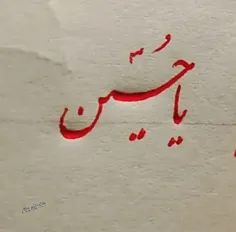 یا حُسین